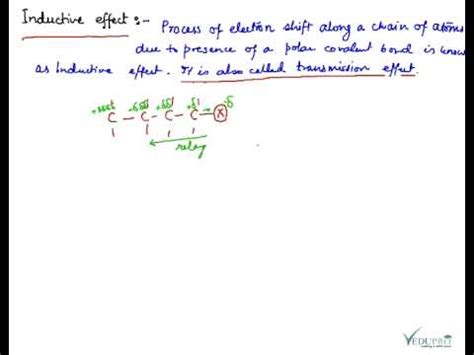 Inductive effect :- Process of electron shift along a chain of atoms
due to presence of a polar covalent bond is known
as Inductive effect. It is also called transmission effect.
C - C - C - C - X
relay
VEDUPRO